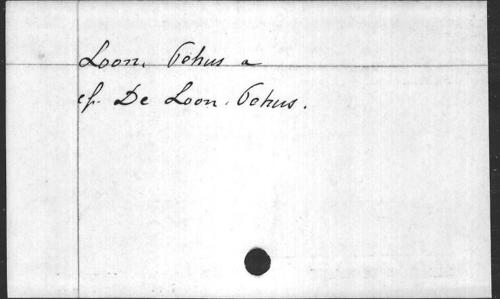 Loon, Pehus a
cf. De Loon, Pehus.